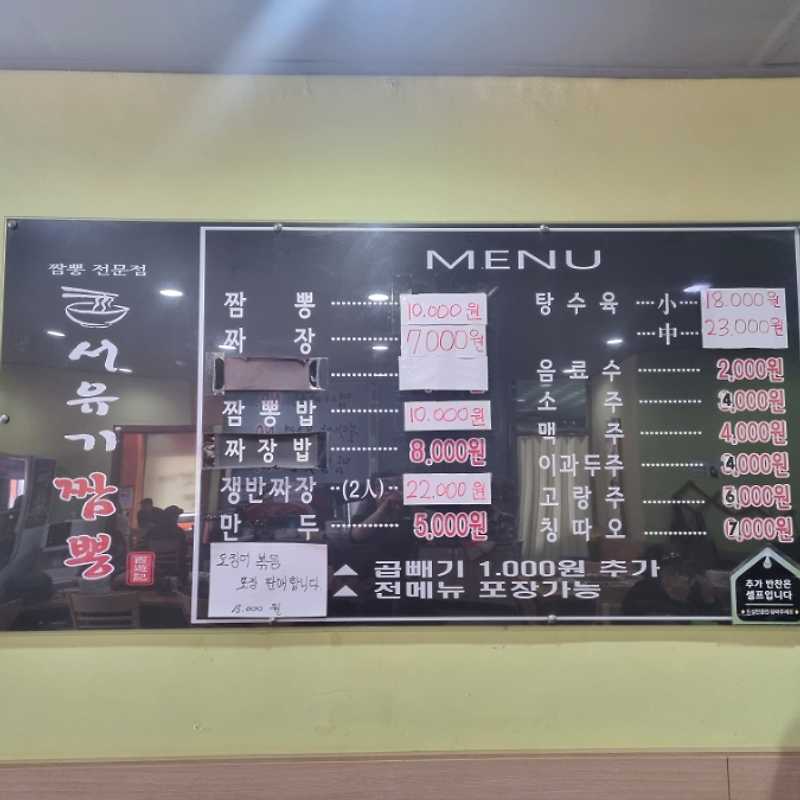 짬뽕 전문점
서유기
짬뽕
西遊記
MENU
짬 뽕 ·········· 10.000원
짜 장 ·········· 7000원
짬뽕밥 ·········· 10.000원
짜장밥 ·········· 8,000원
쟁반짜장 ··(2人)·· 22.000원
만 두 ·········· 5,000원
오징어 볶음
포장 판매합니다
탕수육 ···小··· 18.000원
···中··· 23.000원
음료수 ·········· 2,000원
소 주 ·········· 4,000원
맥 주 ·········· 4,000원
이과두주 ·········· 4,000원
고량주 ·········· 6,000원
칭따오 ·········· 7,000원
▲ 곱빼기 1.000원 추가
▲ 전메뉴 포장가능
추가 반찬은
셀프입니다